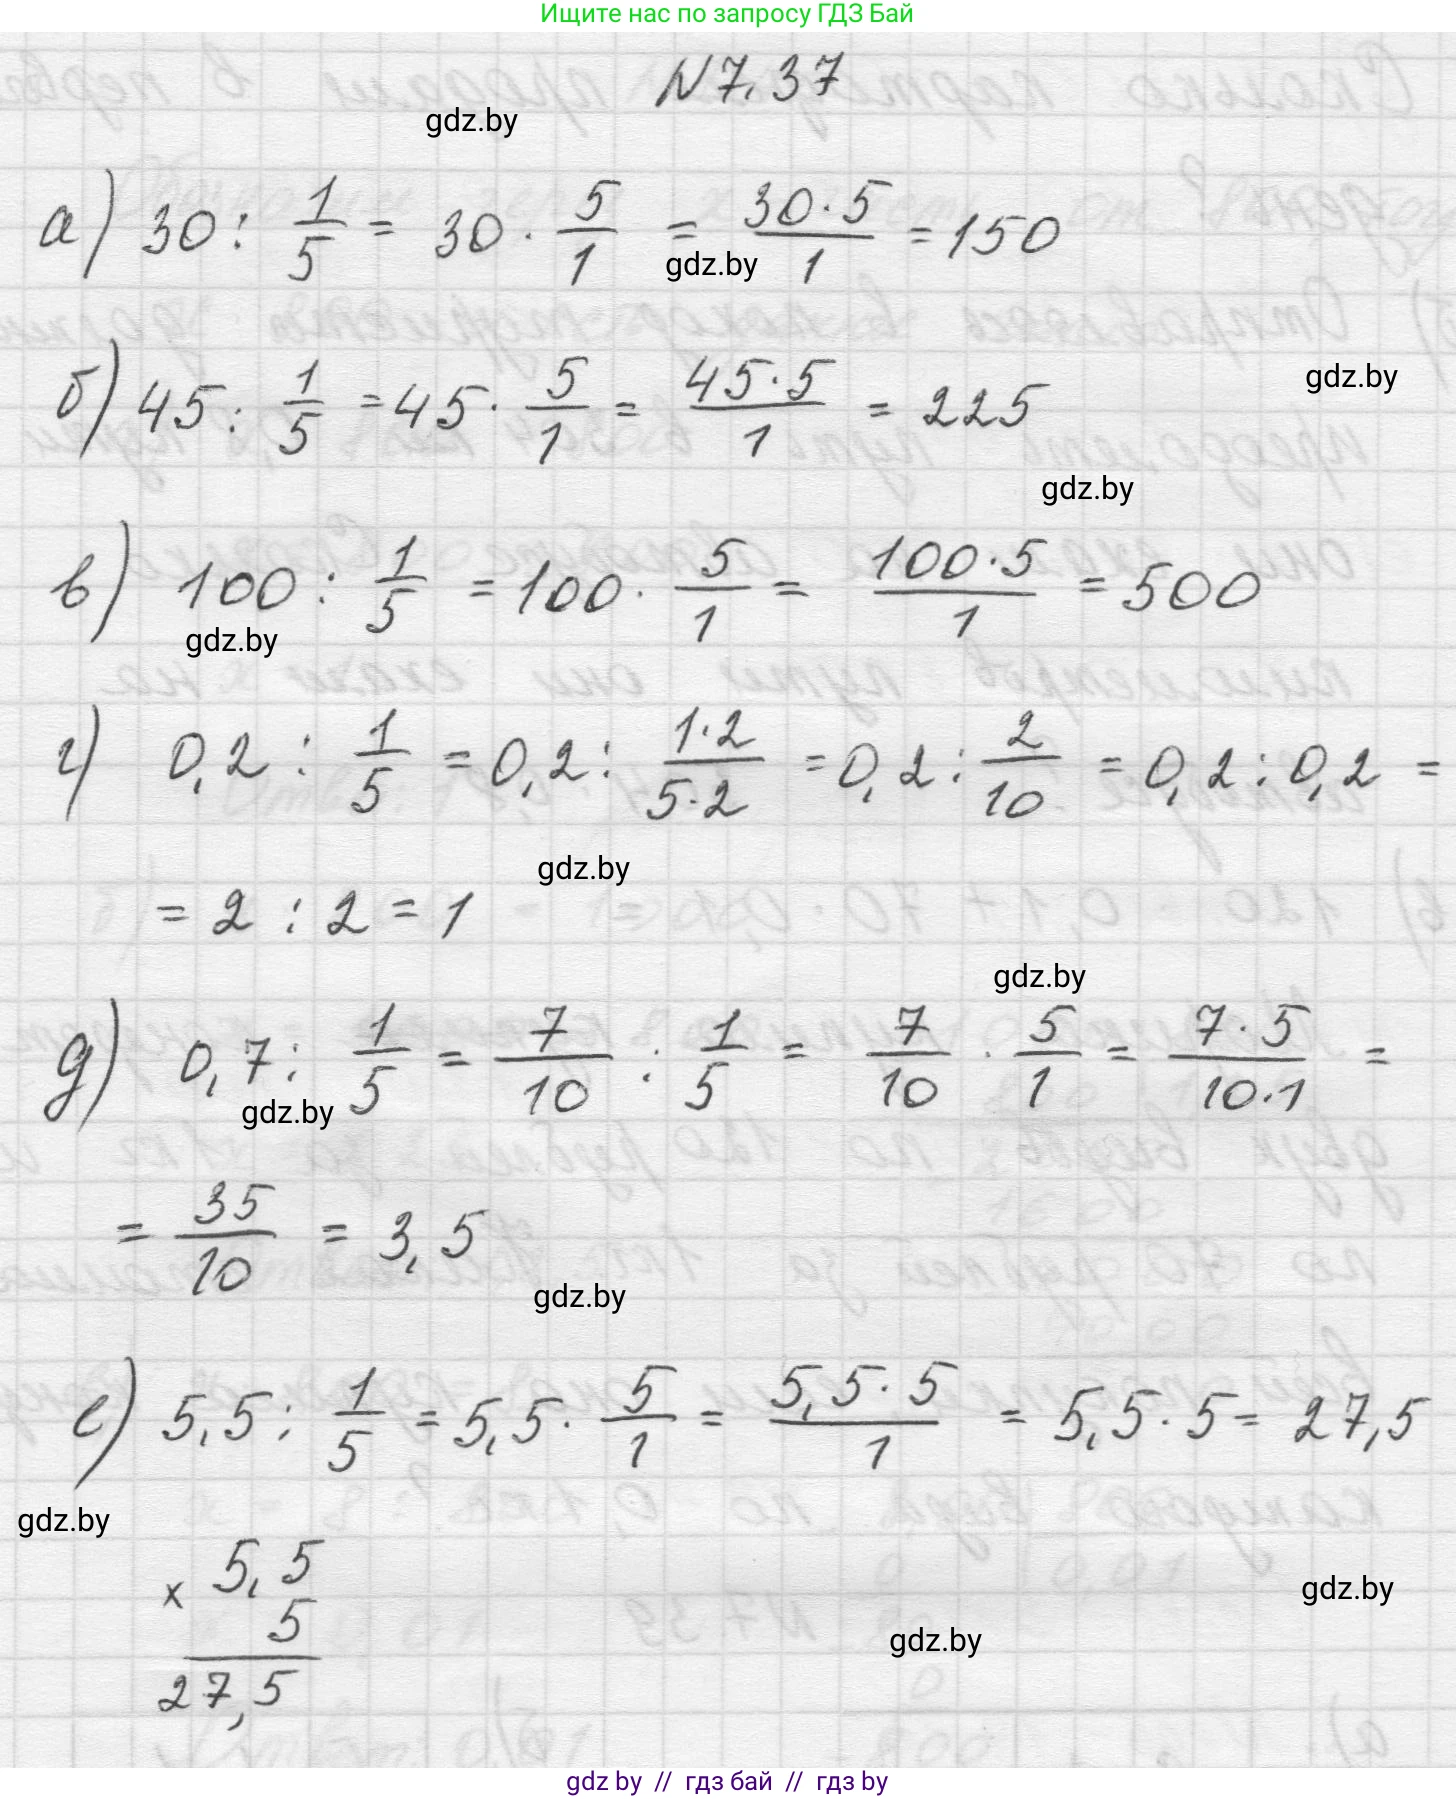 Ищите нас по запросу ГДЗ Бай
N7.37
gdz.by
а) 30 : 1/5 = 30 · 5/1 = 30·5/1 = 150
gdz.by
б) 45 : 1/5 = 45 · 5/1 = 45·5/1 = 225
gdz.by
gdz.by
в) 100 : 1/5 = 100 · 5/1 = 100·5/1 = 500
gdz.by
г) 0,2 : 1/5 = 0,2 : 1·2/5·2 = 0,2 : 2/10 = 0,2 : 0,2 =
gdz.by
= 2 : 2 = 1
gdz.by
д) 0,7 : 1/5 = 7/10 : 1/5 = 7/10 · 5/1 = 7·5/10·1 =
gdz.by
= 35/10 = 3,5
gdz.by
е) 5,5 : 1/5 = 5,5 · 5/1 = 5,5·5/1 = 5,5 · 5 = 27,5
gdz.by
x 5,5
5
27,5
gdz.by
gdz.by
gdz by // гдз бай // гдз by